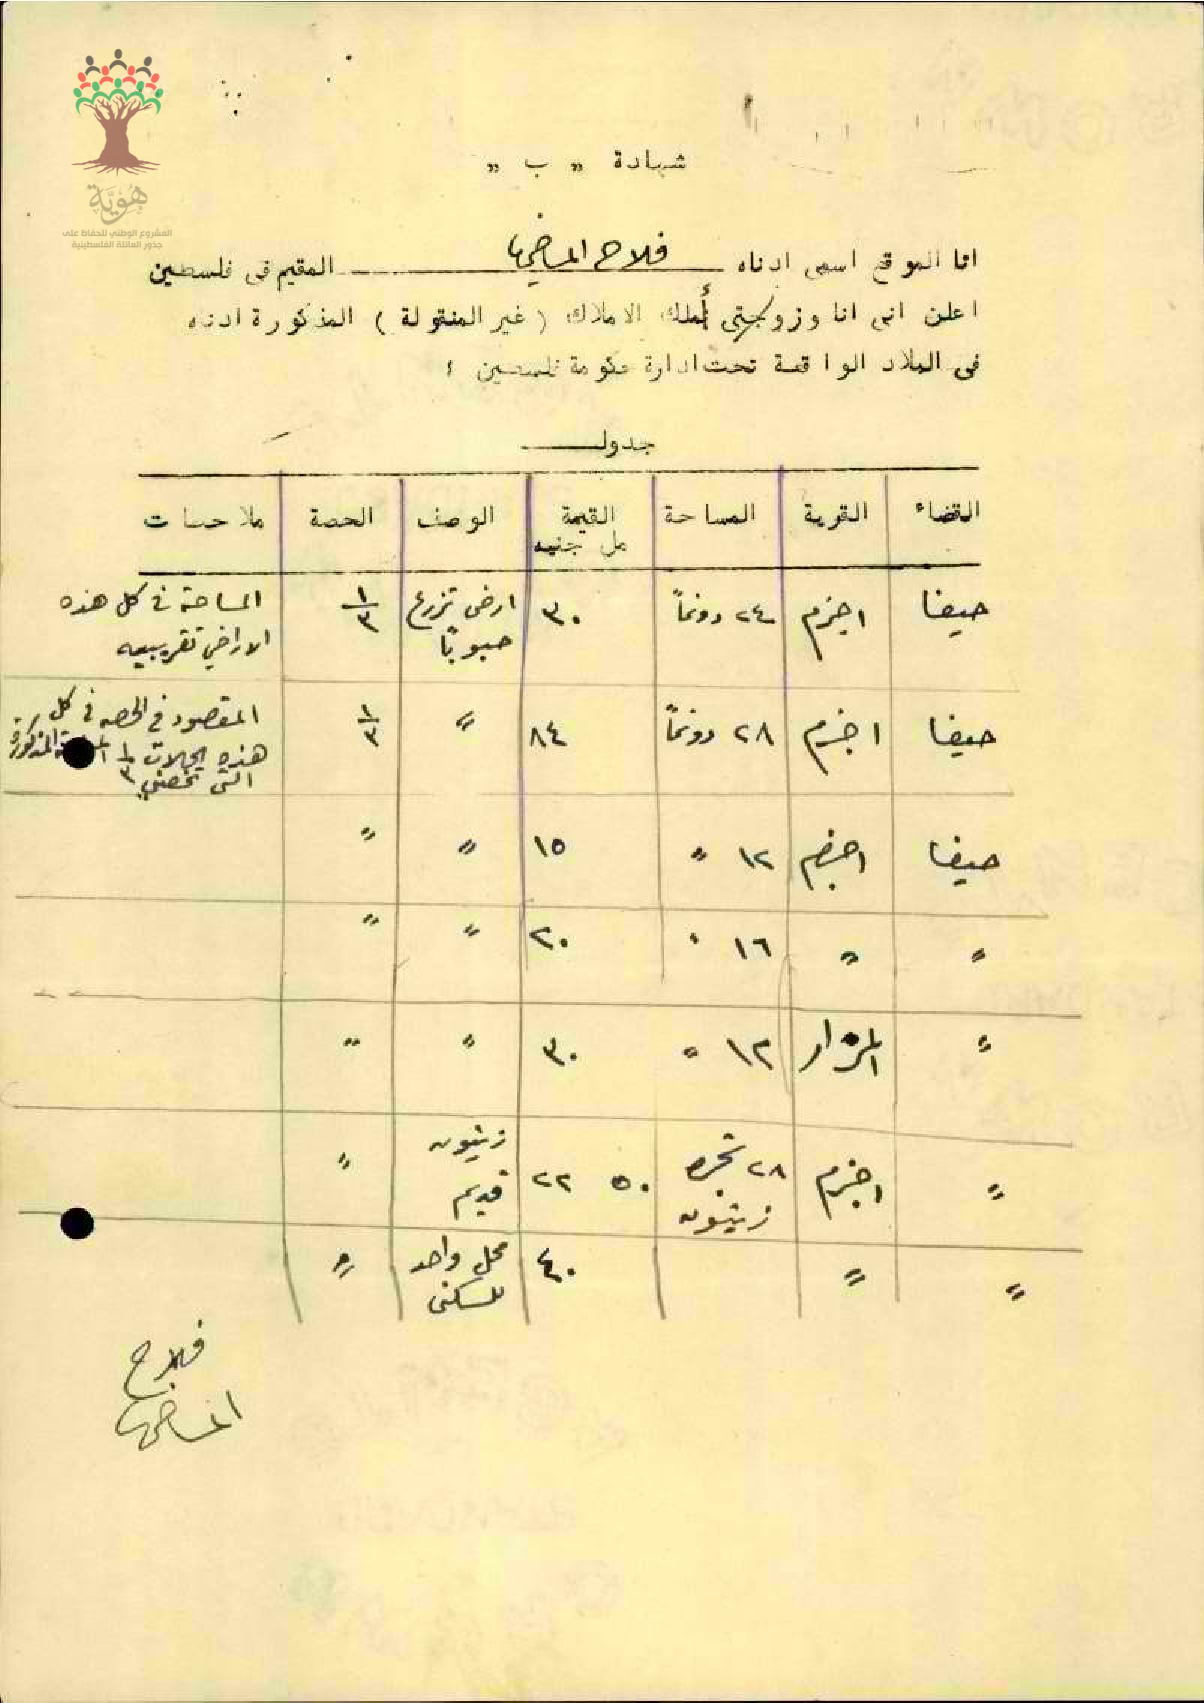 هوية
المشروع الوطني للحفاظ على
جذور العائلة الفلسطينية
شهادة " ب "
انا الموقع اسمي ادناه فلاح الماضي المقيم في فلسطين
اعلن اني انا وزوجتي أملك الاملاك ( غير المنقولة ) المذكورة ادناه
في البلاد الواقعة تحت ادارة حكومة فلسطين :
جدول
القضاء القرية المساحة القيمة الوصف الحصة ملاحظات
مل جنيه
حيفا اجزم ٢٤ دونماً ٣٠ ارض تزرع حبوباً ١/٣ المساحة في كل هذه
الاراضي تقريبيه
حيفا اجزم ٢٨ دونماً ٨٤ " ١/٣ المقصود في الحصه في كل
هذه المذكورة
التي تخصني
حيفا اجزم ١٢ " ١٥ " "
" " ١٦ " ٢٠ " "
" المزار ١٢ " ٣٠ " "
" اجزم ٢٨ شجرة زيتون ٥٠ ٢٢ زيتون قديم "
" " ٤٠ محل واحد للسكن "
فلاح
الماضي